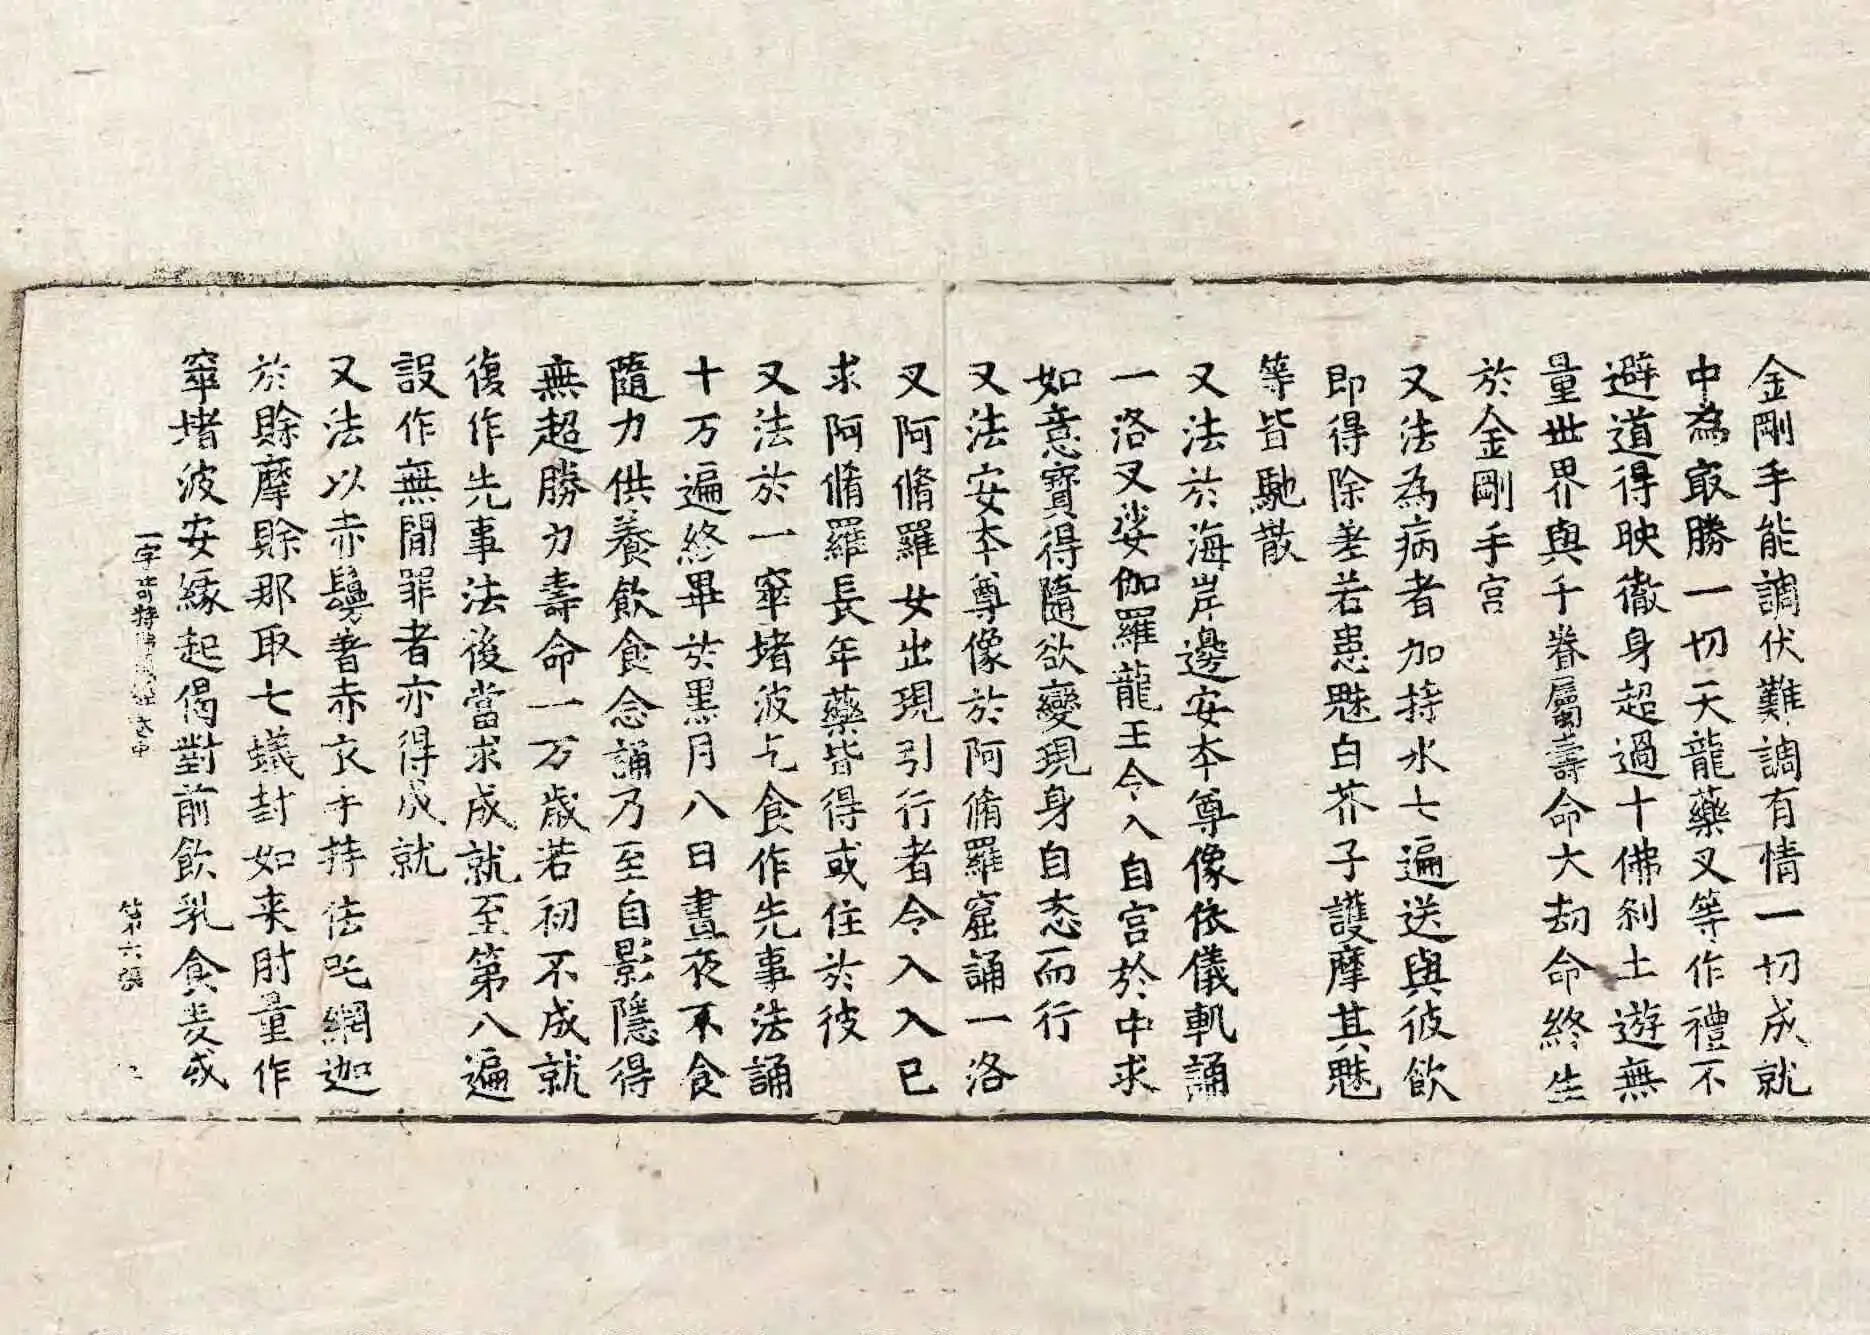 金剛手能調伏難調有情一切成就
中為㝡勝一切天龍藥叉等作禮不
避道得映徹身超過十佛刹土遊無
量世界與千眷屬壽命大劫命終生
於金剛手宮
又法為病者加持水七遍送與彼飲
即得除差若患魅白芥子護摩其魅
等皆馳散
又法於海岸邊安本尊像依儀軌誦
一洛叉娑伽羅龍王令入自宮於中求
如意寶得隨欲變現身自恣而行
又法安本尊像於阿脩羅窟誦一洛
叉阿脩羅女出現引行者令入入已
求阿脩羅長年藥皆得或住於彼
又法於一窣堵波乞食作先事法誦
十万遍終畢於黑月八日晝夜不食
隨力供養飲食念誦乃至自影隱得
無超勝力壽命一万歲若初不成就
復作先事法後當求成就至第八遍
設作無間罪者亦得成就
又法以赤鬘著赤衣手持佉吒網迦
於賖摩賖那取七蟻封如来肘量作
窣堵波安緣起偈對前飲乳食麦或
一字奇特佛頂經卷中 第六張